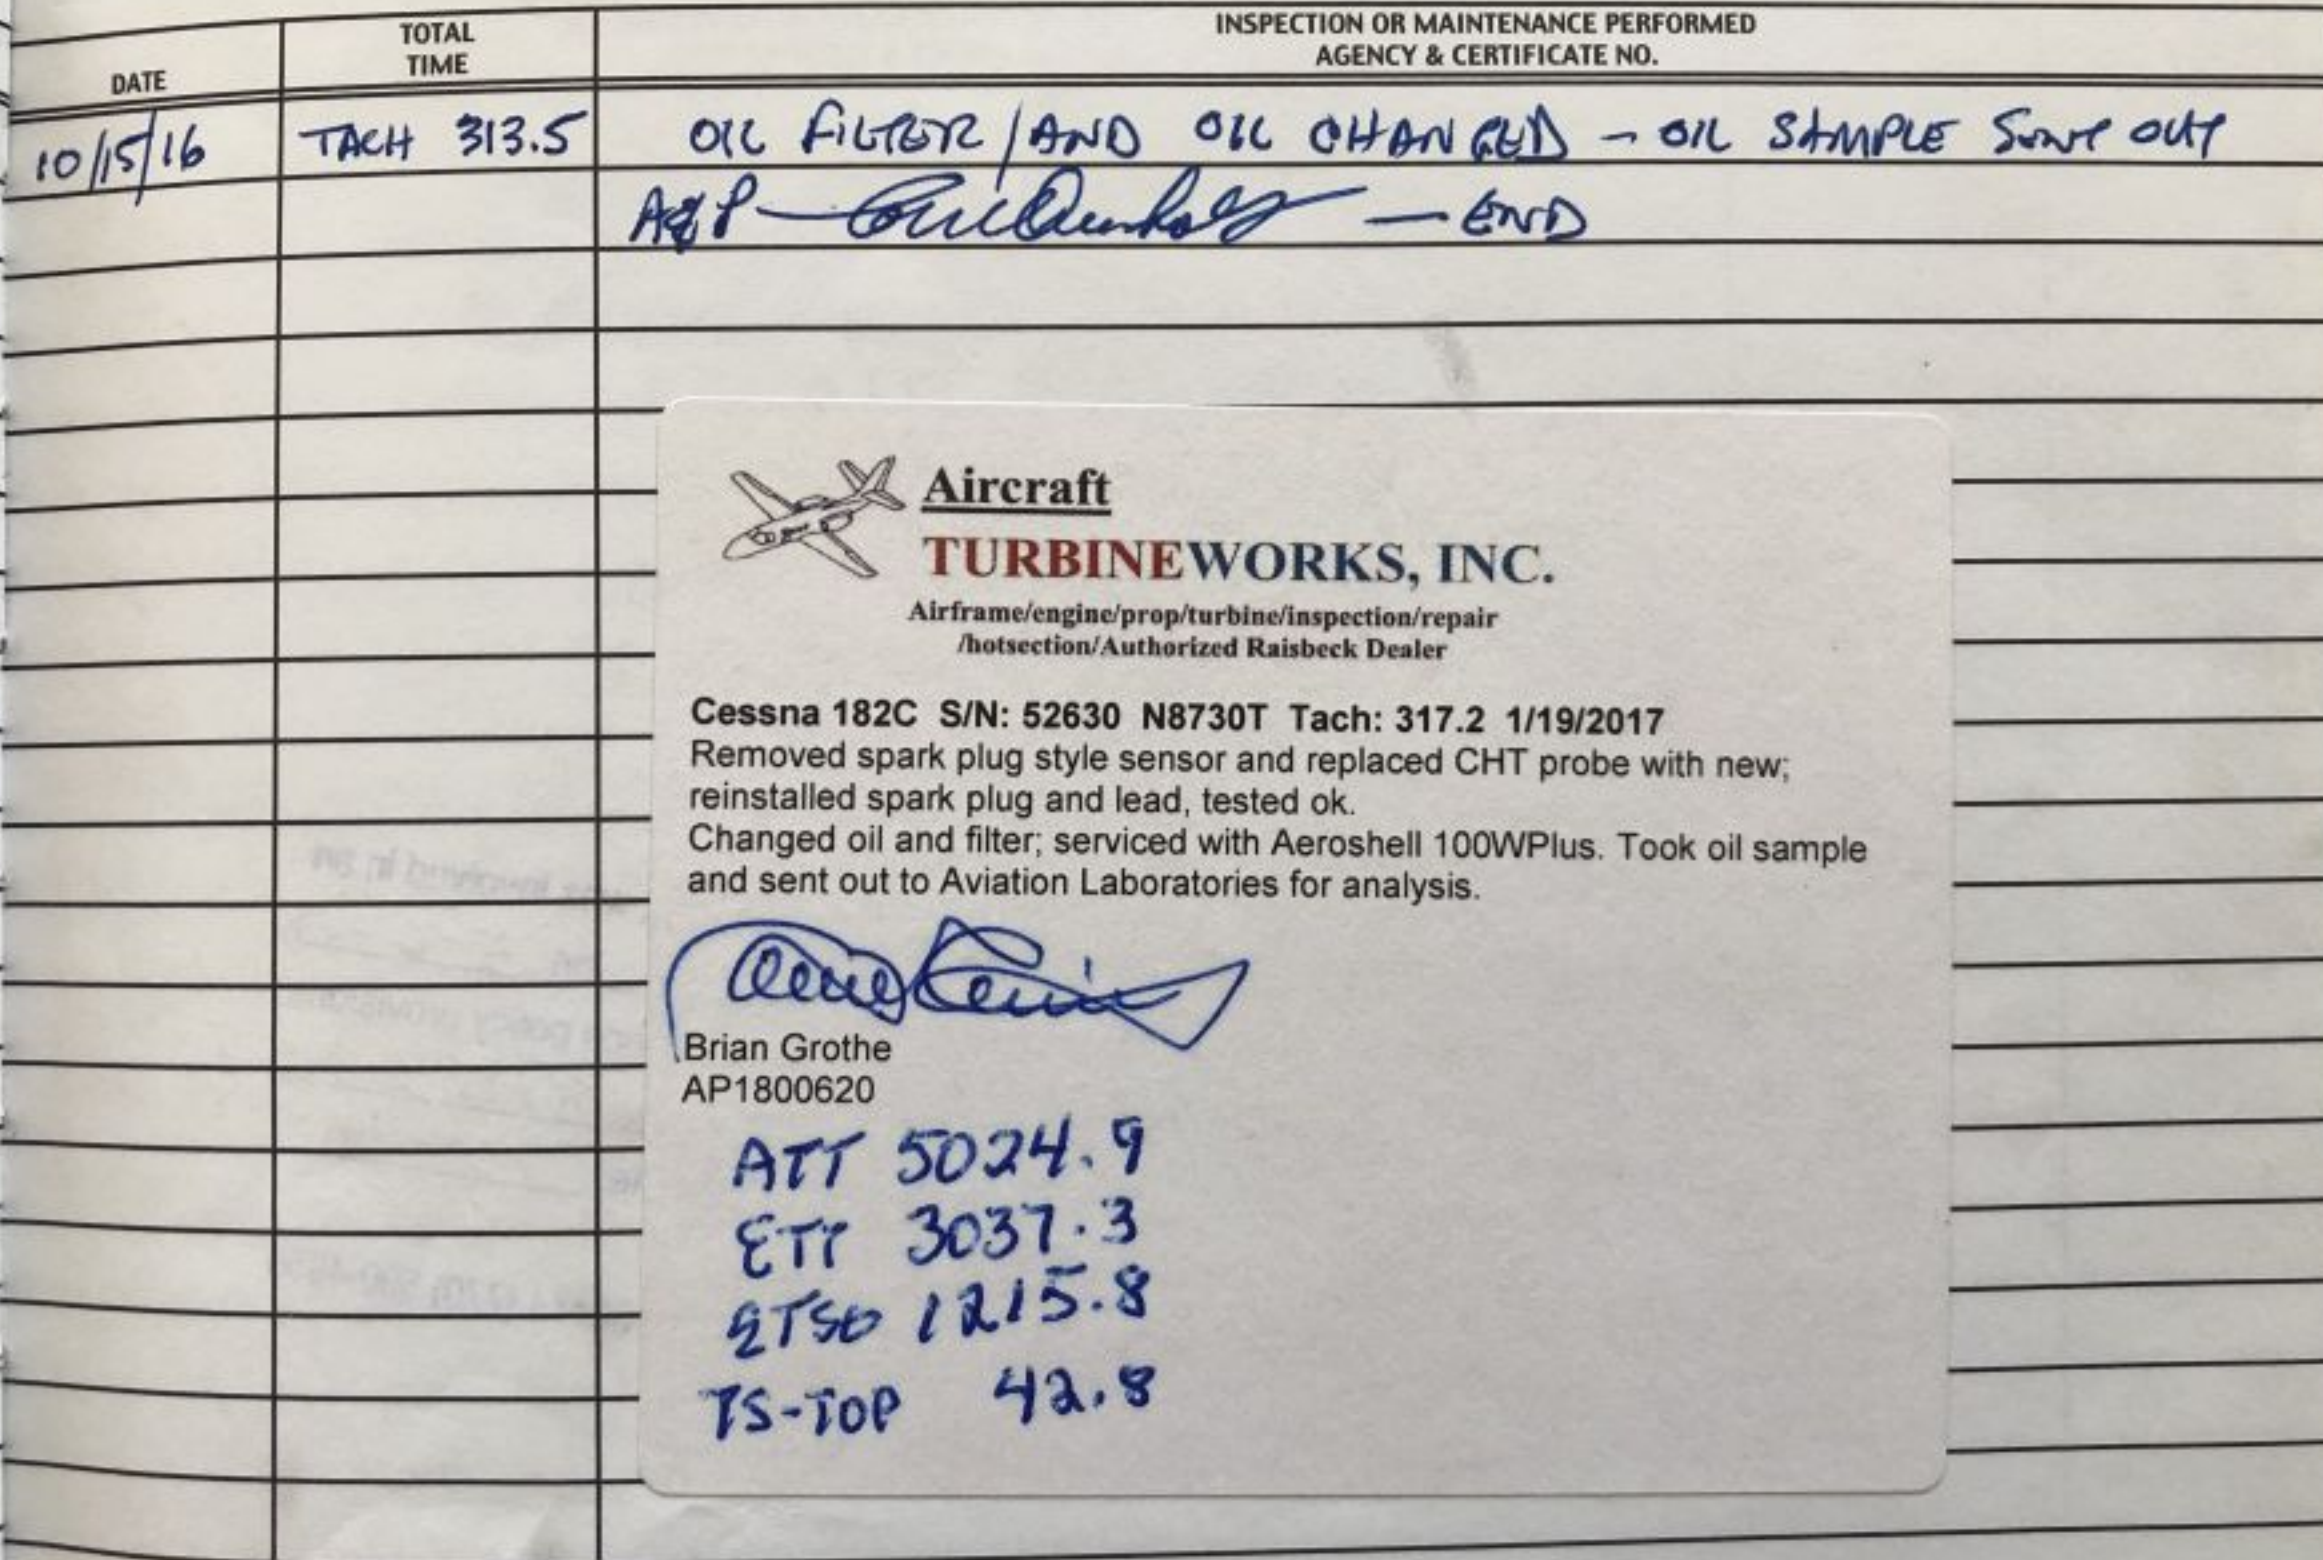 DATE
TOTAL
TIME
INSPECTION OR MAINTENANCE PERFORMED
AGENCY & CERTIFICATE NO.
10/15/16 TACH 313.5 OIL FILTER/AND OIL CHANGED - OIL SAMPLE SENT OUT
A&P — — END
Aircraft
TURBINEWORKS, INC.
Airframe/engine/prop/turbine/inspection/repair
/hotsection/Authorized Raisbeck Dealer
Cessna 182C S/N: 52630 N8730T Tach: 317.2 1/19/2017
Removed spark plug style sensor and replaced CHT probe with new;
reinstalled spark plug and lead, tested ok.
Changed oil and filter; serviced with Aeroshell 100WPlus. Took oil sample
and sent out to Aviation Laboratories for analysis.
Brian Grothe
AP1800620
ATT 5024.9
ETT 3037.3
ETSO 1215.8
TS-TOP 42.8